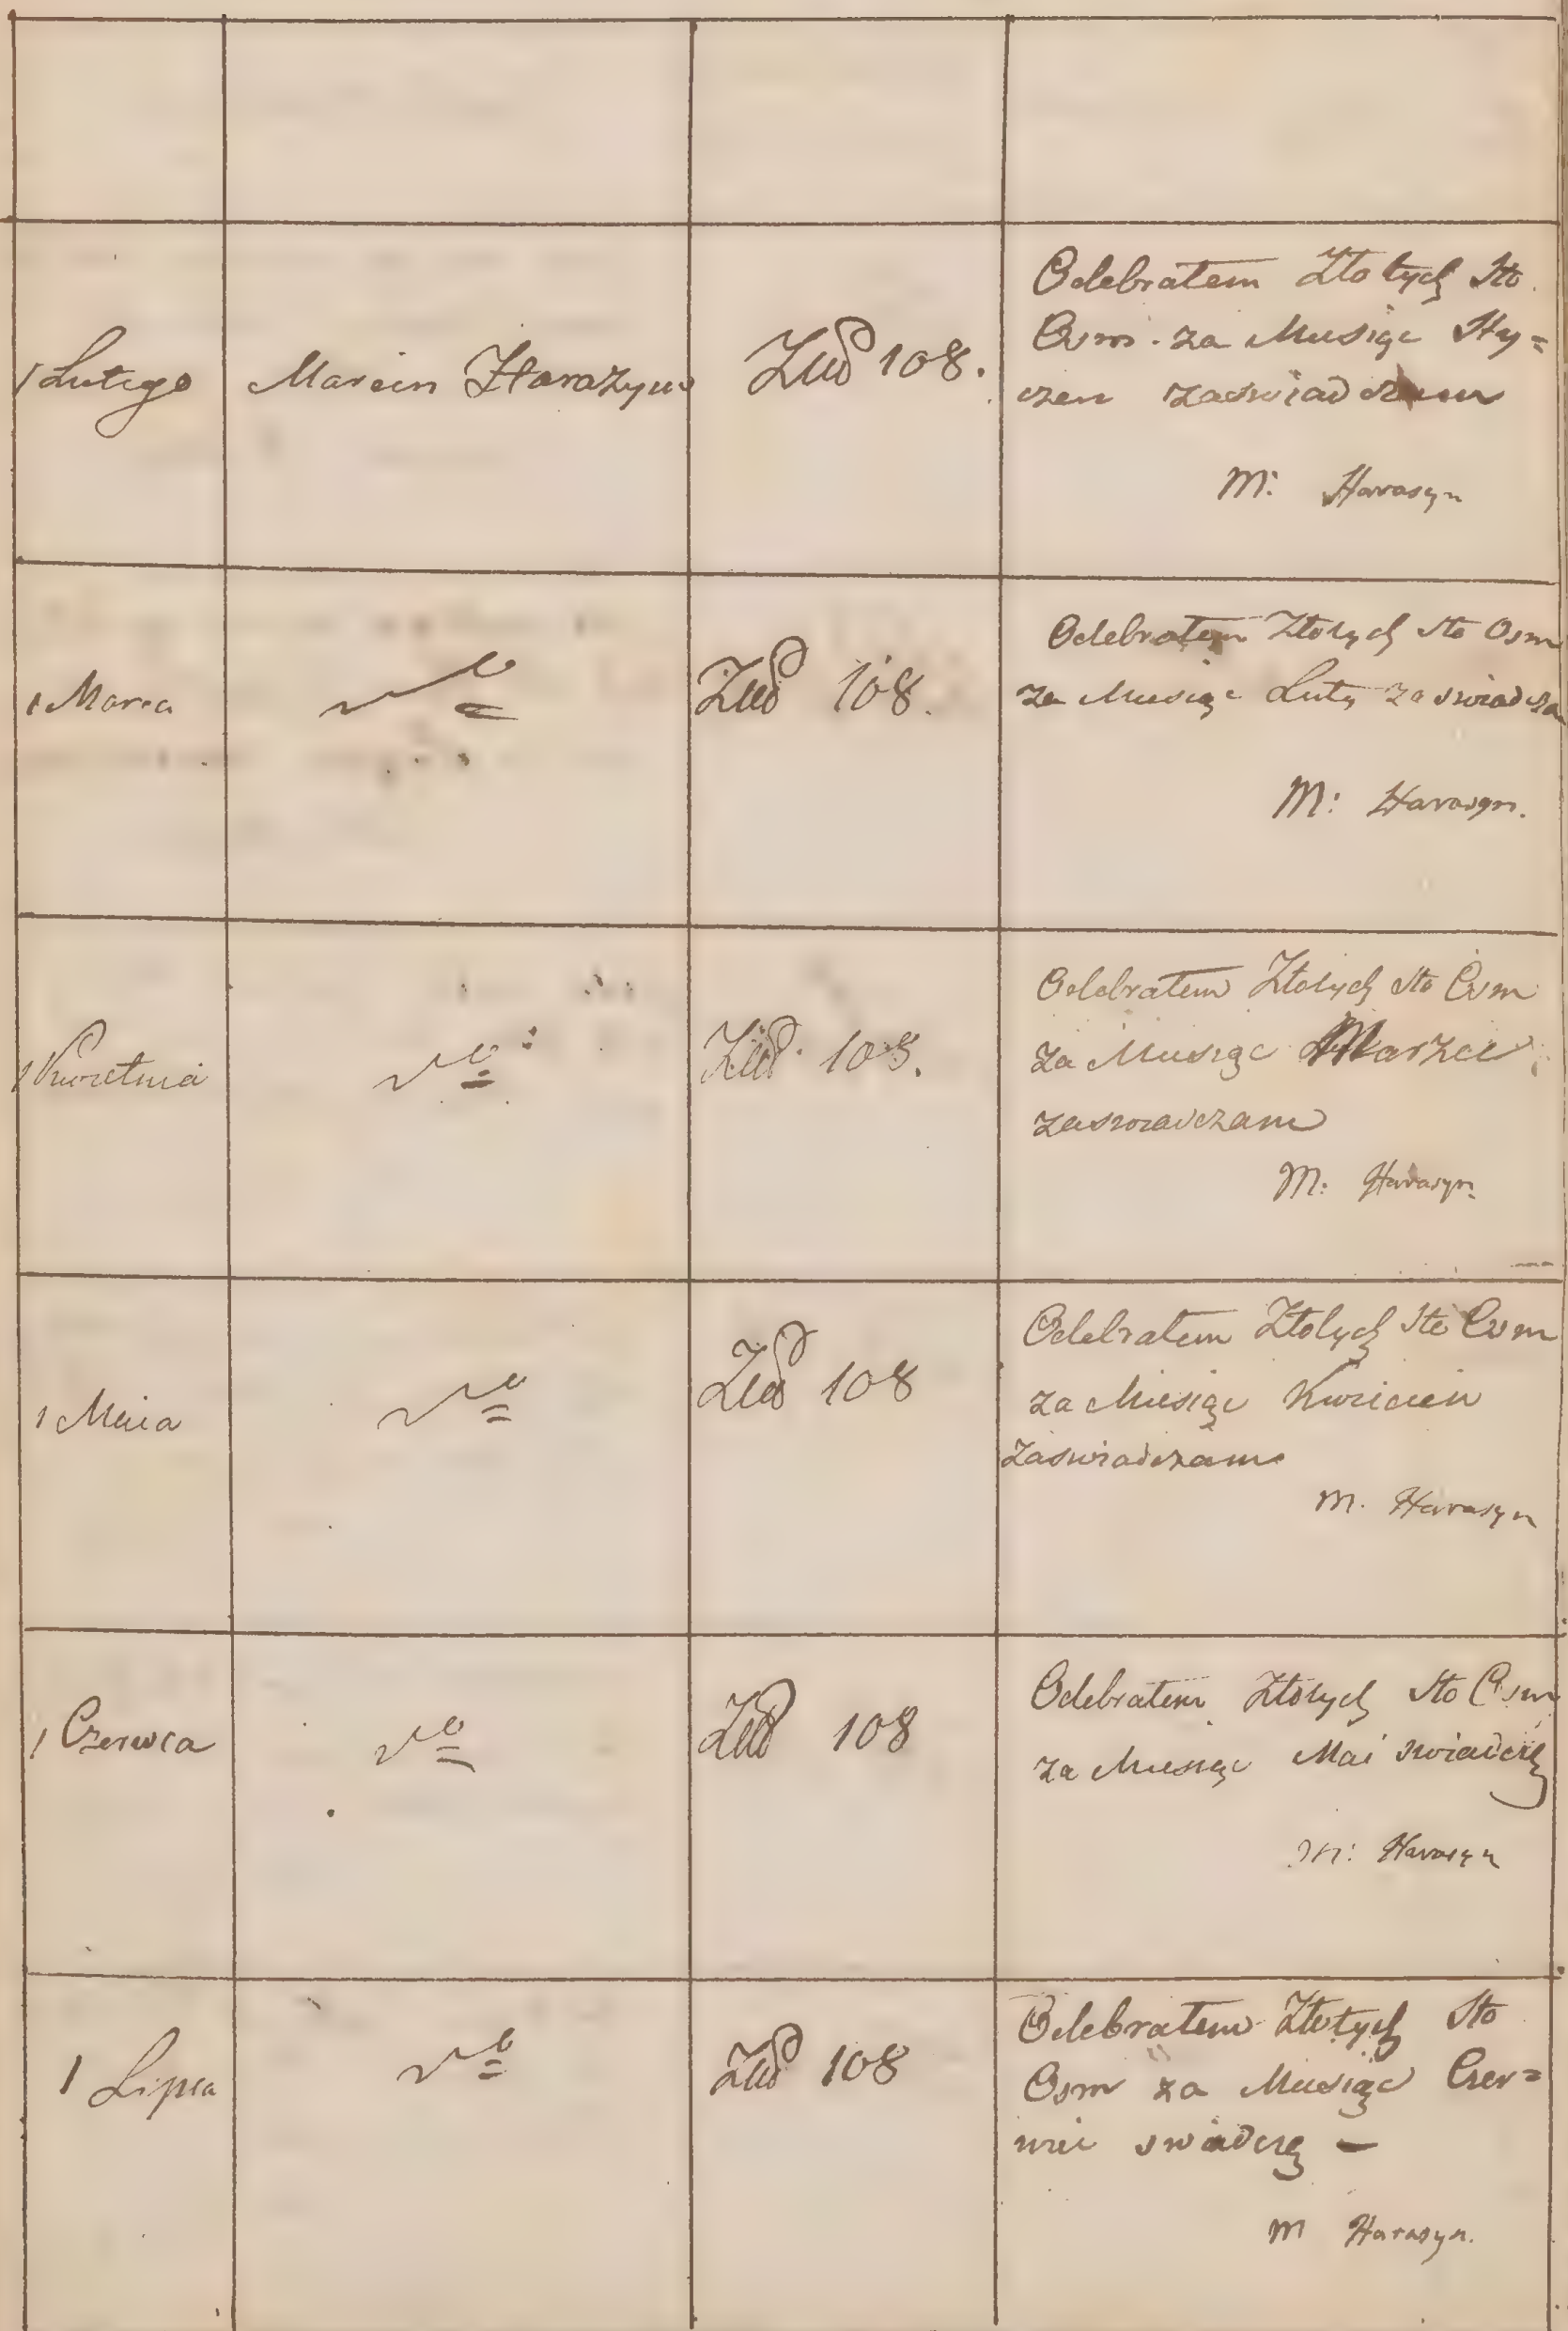 1 Lutego
Marcin Harazyn
Złłd 108.
Odebrałem Złotych Sto
Osm za Miesiąc Sty=
czen zaswiadczam
M: Harasyn
1 Marca
Złłd 108.
Odebrałem Złotych sto Osm
za Miesiąc Luty zaswiadcza
M: Harasyn.
1 Kwietnia
Złłd 108.
Odebrałem Złotych sto Osm
za Miesiąc Marzec
zaswiadczam
M: Harasyn.
1 Maia
Złłd 108
Odebrałem Złotych Sto Osm
za Miesiąc Kwiecien
Zaswiadczam
M. Harasyn
1 Czerwca
Złłd 108
Odebrałem Złotych Sto Osm
za Miesiąc Mai swiadczę
M: Harasyn
1 Lipca
Złłd 108
Odebrałem Złotych Sto
Osm za Miesiąc Czer=
wiec swiadczę —
M Harasyn.